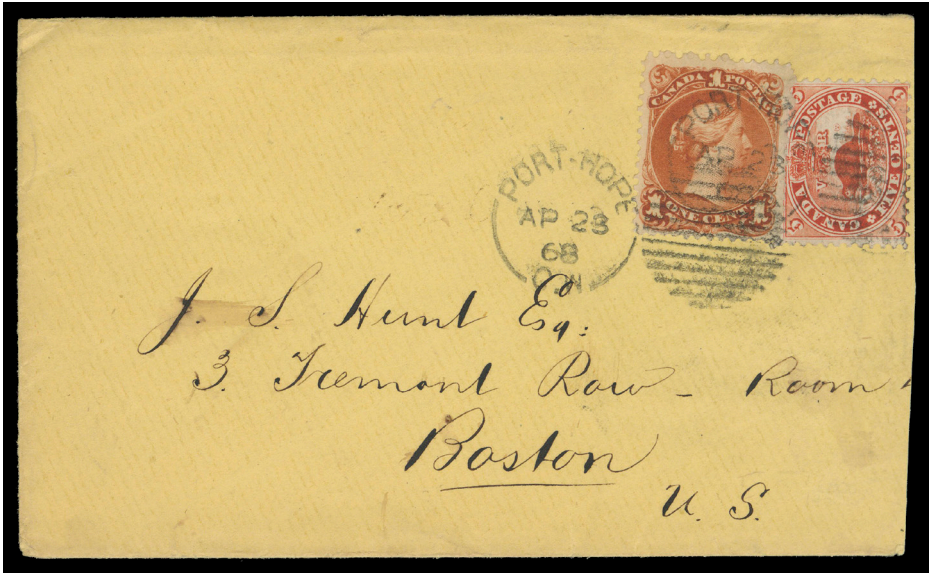 CANADA 1 POSTAGE
1 ONE CENT 1
CANADA POSTAGE
FIVE CENTS
PORT-HOPE
AP 23
68
C.W
J. S. Hunt Esq:
3. Tremont Row - Room
Boston
U. S.